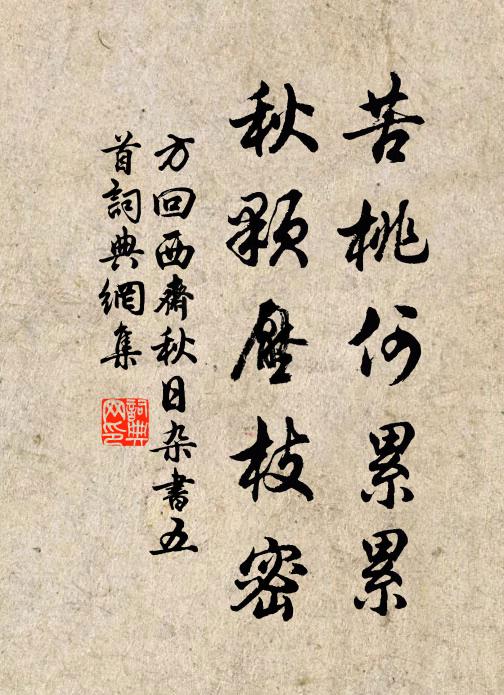 苦桃何累累
秋顆壓枝密
方回西齋秋日杂書五
首詞典網集
詞典
网印